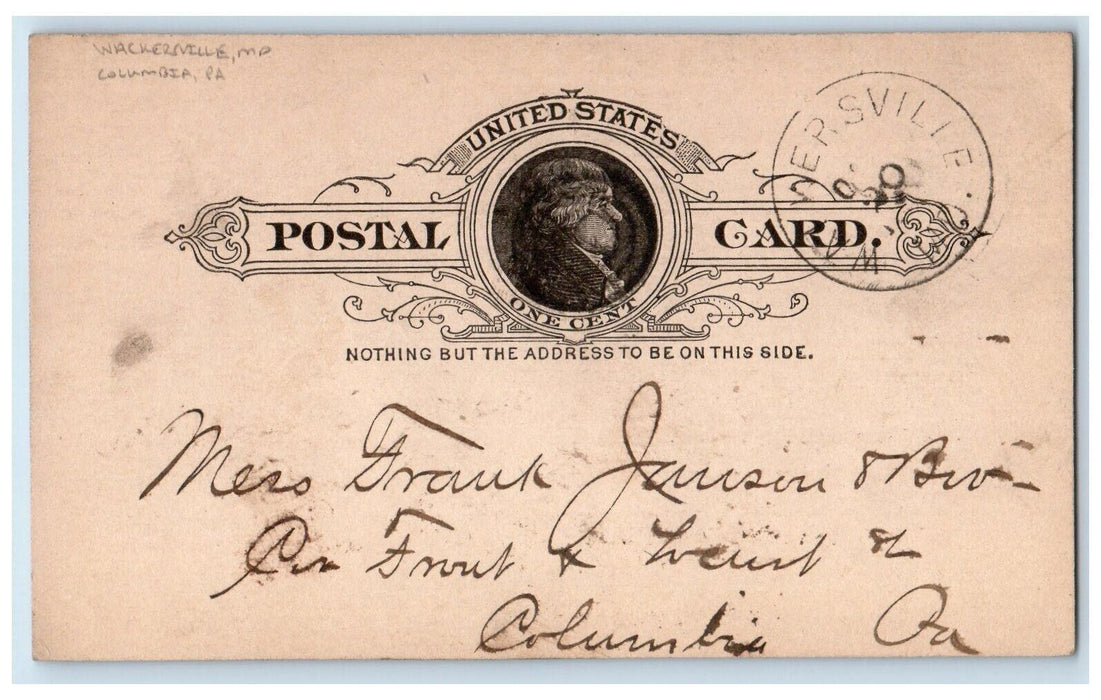 WACKERSVILLE, MD
COLUMBIA, PA
UNITED STATES
ERSVILLE.
POSTAL CARD.
ONE CENT
NOTHING BUT THE ADDRESS TO BE ON THIS SIDE.
Mess Frank Janson & Bro-
Cor Front & Locust St
Columbia Pa